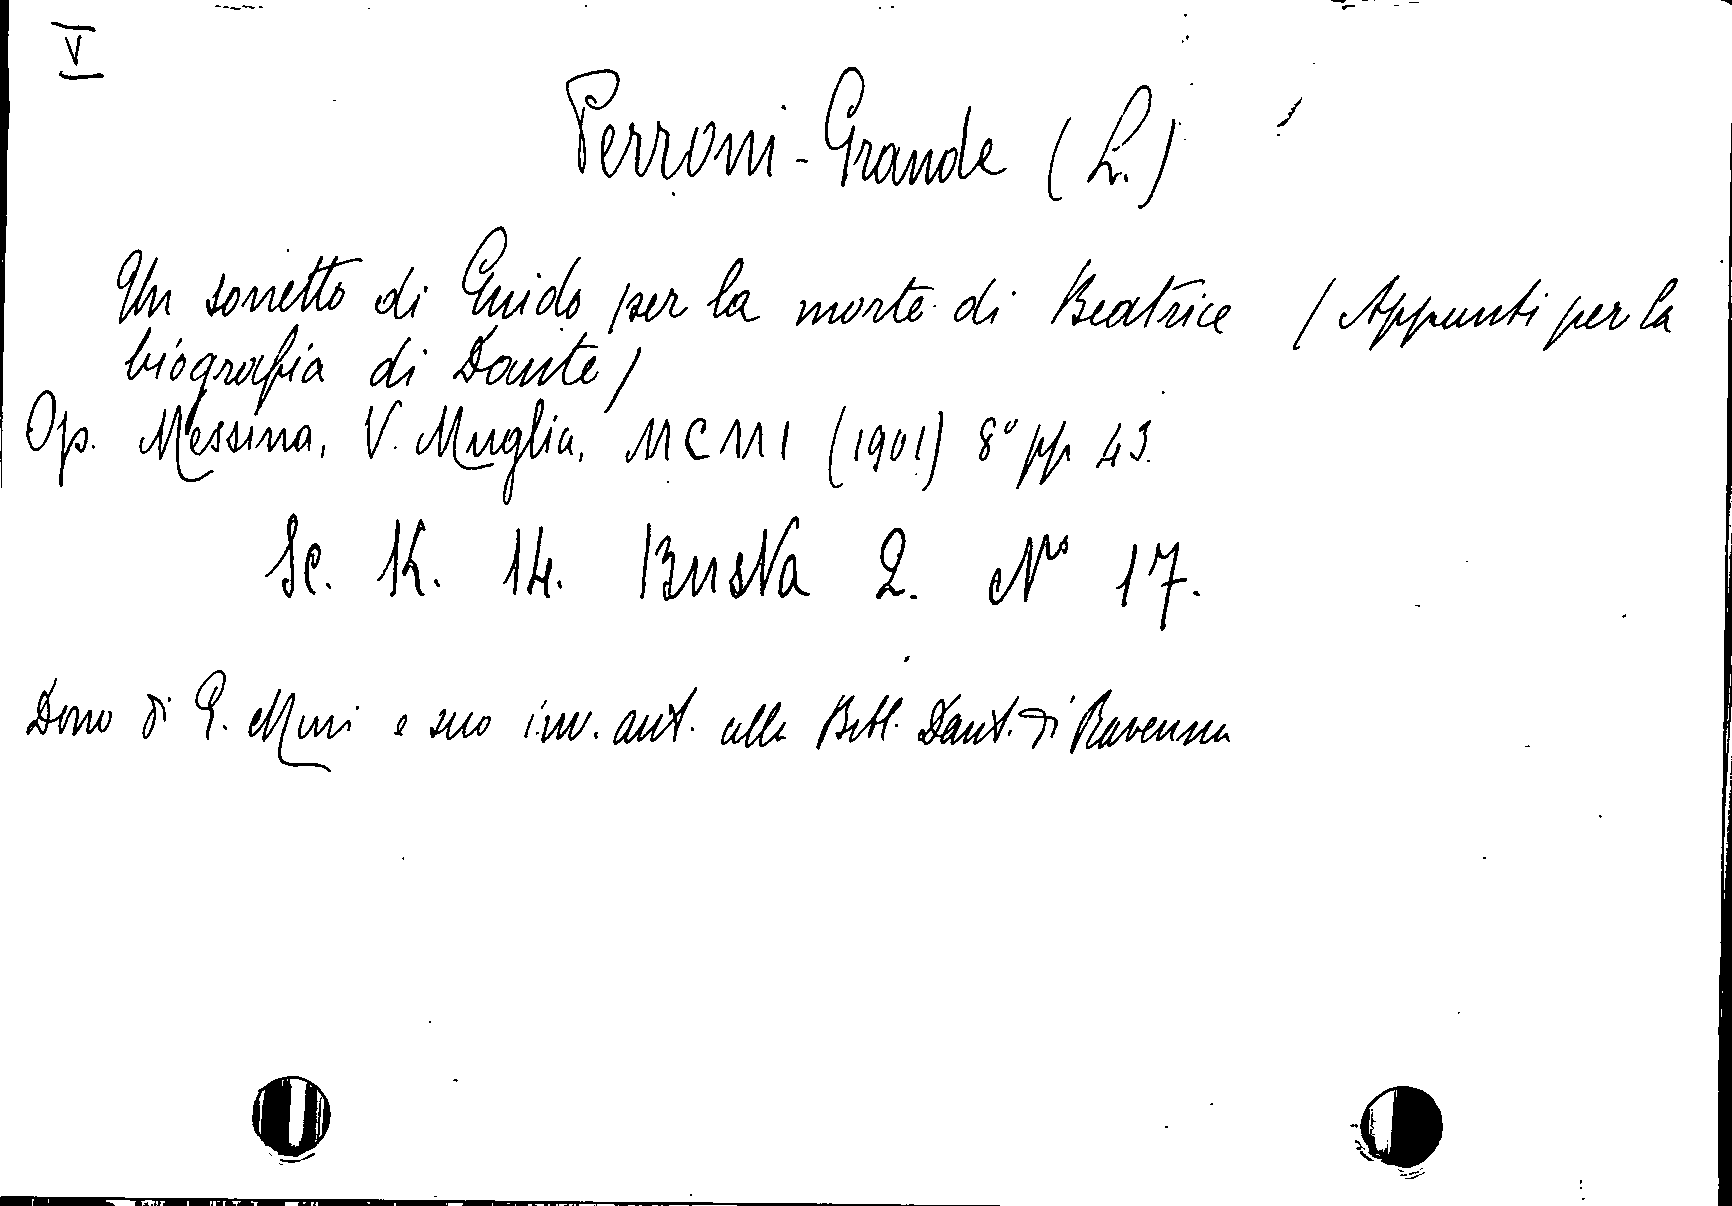 V
Perroni-Grande (L.)
Un sonetto di Guido per la morte di Beatrice (Appunti per la
biografia di Dante)
Op. Messina, V. Muglia, MCMI (1901) 8° pp 43.
Sc. K. 14. Busta 2. No 17.
Dono di e suo inv. ant. alla Bibl. Dant. di Ravenna